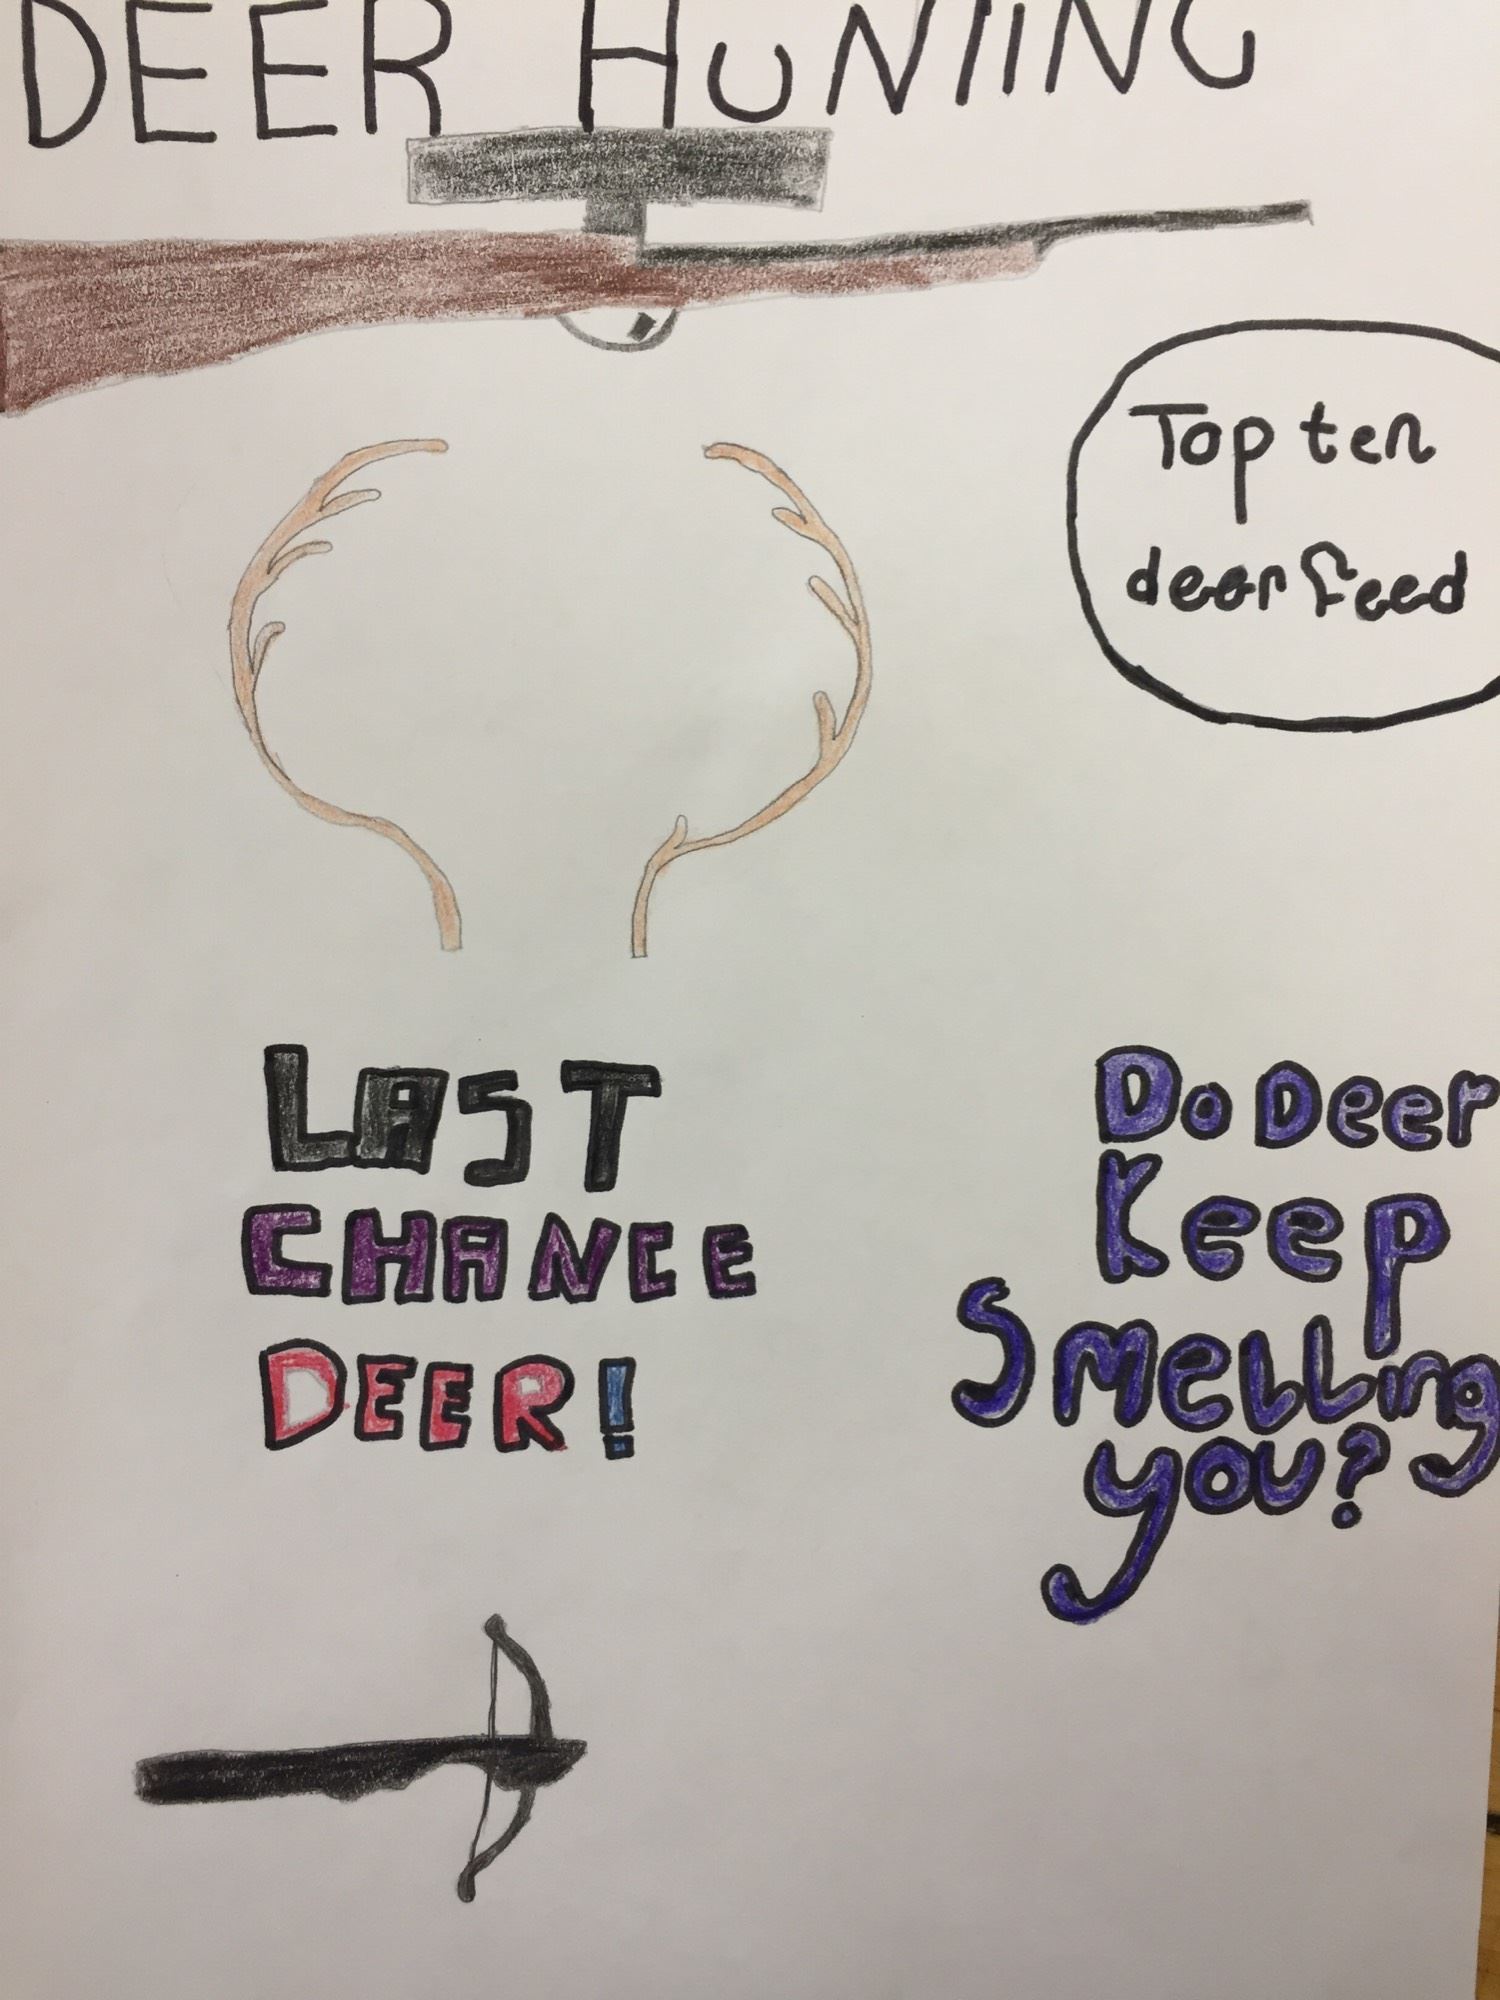 DEER HUNTING
Top ten
deer feed
LAST
CHANCE
DEER!
Do Deer
Keep
Smelling
you?